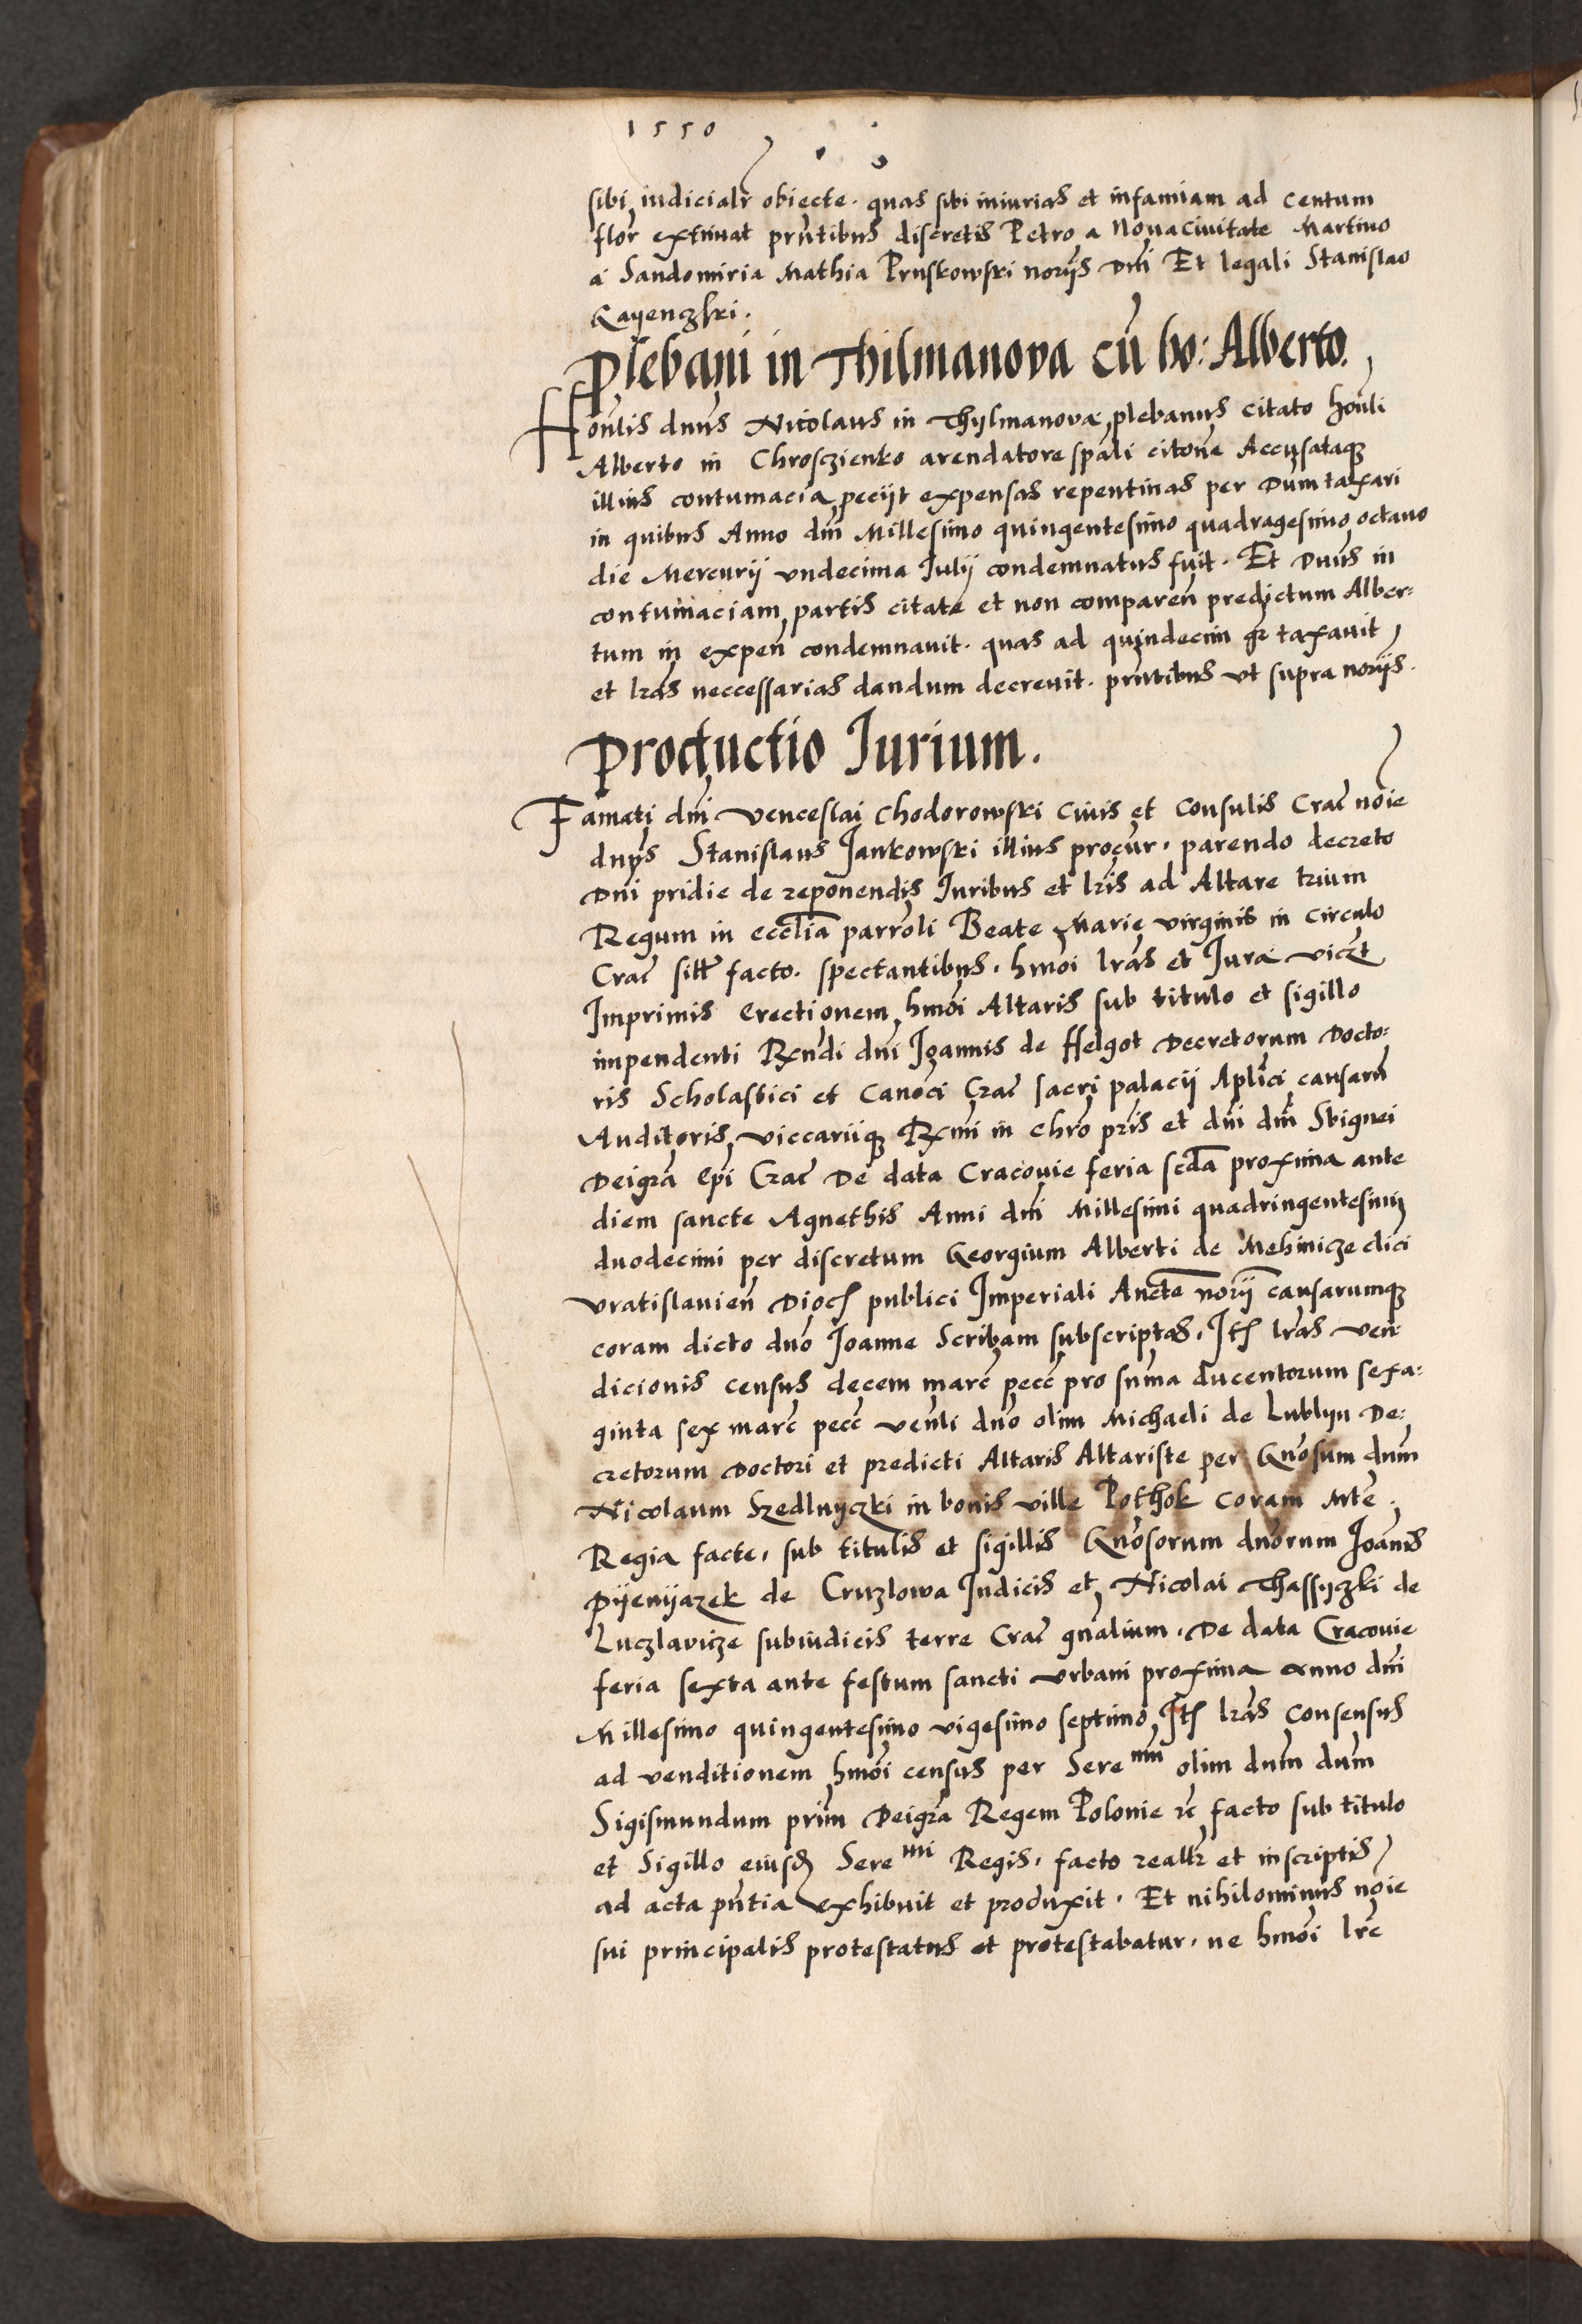 1550
sibi iudicialr obiecte. quas sibi iniurias et infamiam ad centum
flor extimat prntibus discretis Petro a Novacivitate Martino
a Sandomiria Mathia Pruskowski noriis Dni Et legali Stanislao
Gayenczski.
Plebani in Thilmanova cū ho: Alberto.
Honlis dnus Nicolaus in Thylmanova plebanus citato honli
Alberto in Chrosczienko arendatore spali citone Accusataq
illius contumacia peciit expensas repentinas per Dum taxari
in quibus Anno dni Millesimo quingentesimo quadragesimo octavo
die Mercurii undecima Julii condemnatus fuit. Et Dnus in
contumaciam partis citate et non comparen predictum Alber:
tum in expen condemnavit. quas ad quindecim gr taxavit
et lras neccessarias dandum decrevit. prntibus ut supra noriis.
Productio Jurium.
Famati dni Venceslai Chodorowski Civis et Consulis Crac noie
dnus Stanislaus Jankowski illius procur. parendo decreto
Dni pridie de reponendis Juribus et lris ad Altare trium
Regum in ecclia parroli Beate Marie virginis in circulo
Crac silr facto. spectantibus. hmoi lras et Jura viczt
Imprimis Erectionem hmoi Altaris sub titulo et sigillo
impendenti Rxndi dni Joannis de Helgot Decretorum Docto:
ris Scholastici et Canoci Crac sacri palacii Aplici causarū
Auditoris viccariiq Rxmi in chro pris et dni dni Sbignei
Deigra Epi Crac De data Cracovie feria scda proxima ante
diem sancte Agnethis Anni dni Millesimi quadringentesimi
duodecimi per discretum Georgium Alberti de Mehnicze clici
Vratislavien Dioc publici Imperiali Aucte norii causarumq
coram dicto dno Joanne Scribam subscriptas. Itē lras ven
dicionis census decem marc pecc pro suma ducentorum sexa:
ginta sex marc pecc venli dno olim Michaeli de Lublyn De:
cretorum Doctori et predicti Altaris Altariste per Gnosum dnm
Nicolaum Szedlnyczki in bonis ville Pothok coram Mte
Regia facte. sub titulis et sigillis Gnosorum dnorum Joanis
Pyenyazek de Cruzlowa Judicis et Nicolai Thassyczki de
Luczlavicze subiudicis terre Crac gnalium. De data Cracovie
feria sexta ante festum sancti Urbani proxima anno dni
Millesimo quingentesimo vigesimo septimo Itē lras consensus
ad venditionem hmoi census per Sere mm olim dnm dnm
Sigismundum prim Deigra Regem Polonie rc facto sub titulo
et Sigillo eiusd Sere mi Regis. facto realr et inscriptis
ad acta pntia exhibuit et produxit. Et nihilominus noie
sui principalis protestatus et protestabatur. ne hmoi lre